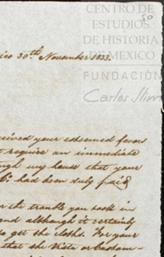 CENTRO DE
ESTUDIOS
DE HISTORIA
DE MEXICO
FUNDACIÓN
Carlos Slim
50
30th November 1833.
your esteemed favors
require an immediate
my house that your
had been duly paid
the trouble you took in
and although it certainly
to get the cloths. For your
that the Vista